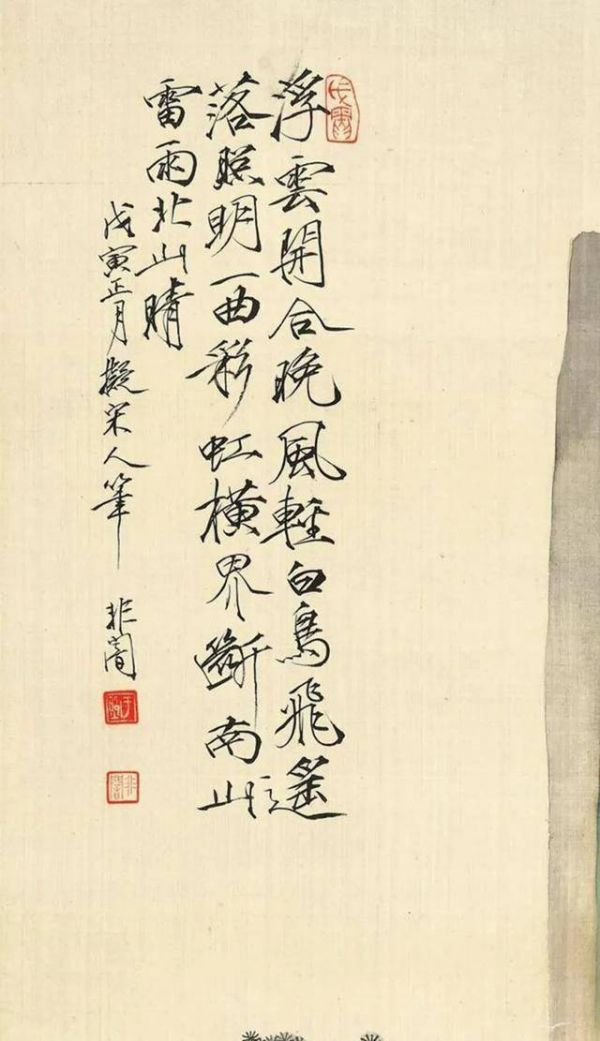 戊寅
浮雲開合晚風輕白鳥飛遙
落照明一曲彩虹橫界斷南山
雷雨北山晴
戊寅正月擬宋人筆 非闇
非闇